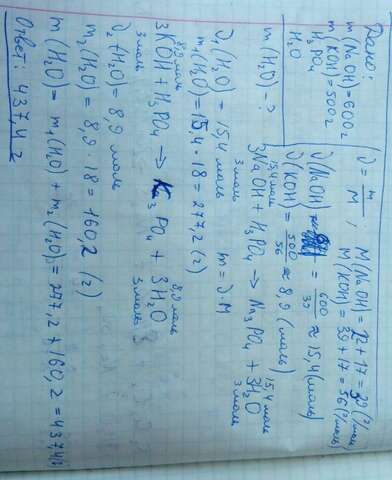 Дано:
m(NaOH)=600г
H₃PO₄
m(KOH)=500г
H₂O
m(H₂O)=?
υ = m/M ; M(NaOH) = 22+17 = 39(г/моль)
M(KOH) = 39+17 = 56(г/моль)
υ(NaOH) = 600/39 ≈ 15,4(моль)
υ(KOH) = 500/56 ≈ 8,9 (моль)
15,4 моль 15,4 моль
3NaOH + H₃PO₄ → Na₃PO₄ + 3H₂O
3 моль 3 моль
υ₁(H₂O) = 15,4 моль m = υ·M
m₁(H₂O) = 15,4·18 = 277,2(г)
8,9 моль 8,9 моль
3KOH + H₃PO₄ → K₃PO₄ + 3H₂O
3 моль 3 моль
υ₂(H₂O) = 8,9 моль
m₂(H₂O) = 8,9·18 = 160,2 (г)
m(H₂O) = m₁(H₂O) + m₂(H₂O) = 277,2 + 160,2 = 437,4г
Ответ: 437,4 г